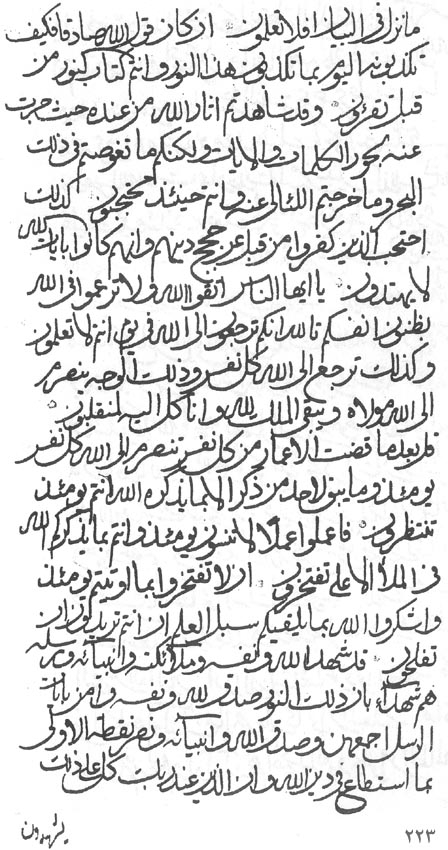 ما نزل فى البيان افلا تعلمون ان كان قول الله صادقا فكيف
تكذبونه اليوم بما تكذبون هذا النور وانتم كنتم به من
قبل تقرئون وقد شاهدتم اثار الله من عنده حيث جرت
عنه بحور الكلمات والايات ولكنكم ما تغوصتم فى ذلك
البحر وما خرجتم اللئالى عنه وانتم حينئذ محتجبون كذلك
احتجب الذين كفروا من قبل عن حجج دينهم وانهم كانوا بايات الله
لا يهتدون يا ايها الناس اتقوا الله ولا ترعموا فى الله
بظنون انفسكم تالله انكم ترجعون الى الله فى يوم انتم لا تعلمون
وكذلك ترجع الى الله كل نفس وذلك الوجه ينصرم
الى الله مولاه ويبقى الملك لله وانا كل اليه لمنقلبون
قل بعد ما قضت الاعمار من كل نفس تنصرم الى الله كل نفس
يومئذ وما يبق لاحد من ذكر الا بما يذكره الله انتم يومئذ
تنتظرون فاعملوا عملا لا تنسون يومئذ وانتم بما يذكركم الله
فى الملا الاعلى تفتخرون ان لا تفتخروا بما اوتيتم يومئذ
واشكروا الله بما يلقيكم سبل العلم ان انتم تريدون ان
تفلحون قد شهد الله ونفسه وملائكته وانبيائه ورسله
هم شهداء بان ذلك النور صدق لله ونفسه وامن بايات
الرسل اجمعين وصدق الله وانبيائه ونصر نقطة الاولى
بما استطاع فى دين الله وان الذين عند ربك كل على ذلك
ليشهدون
٢٢٣